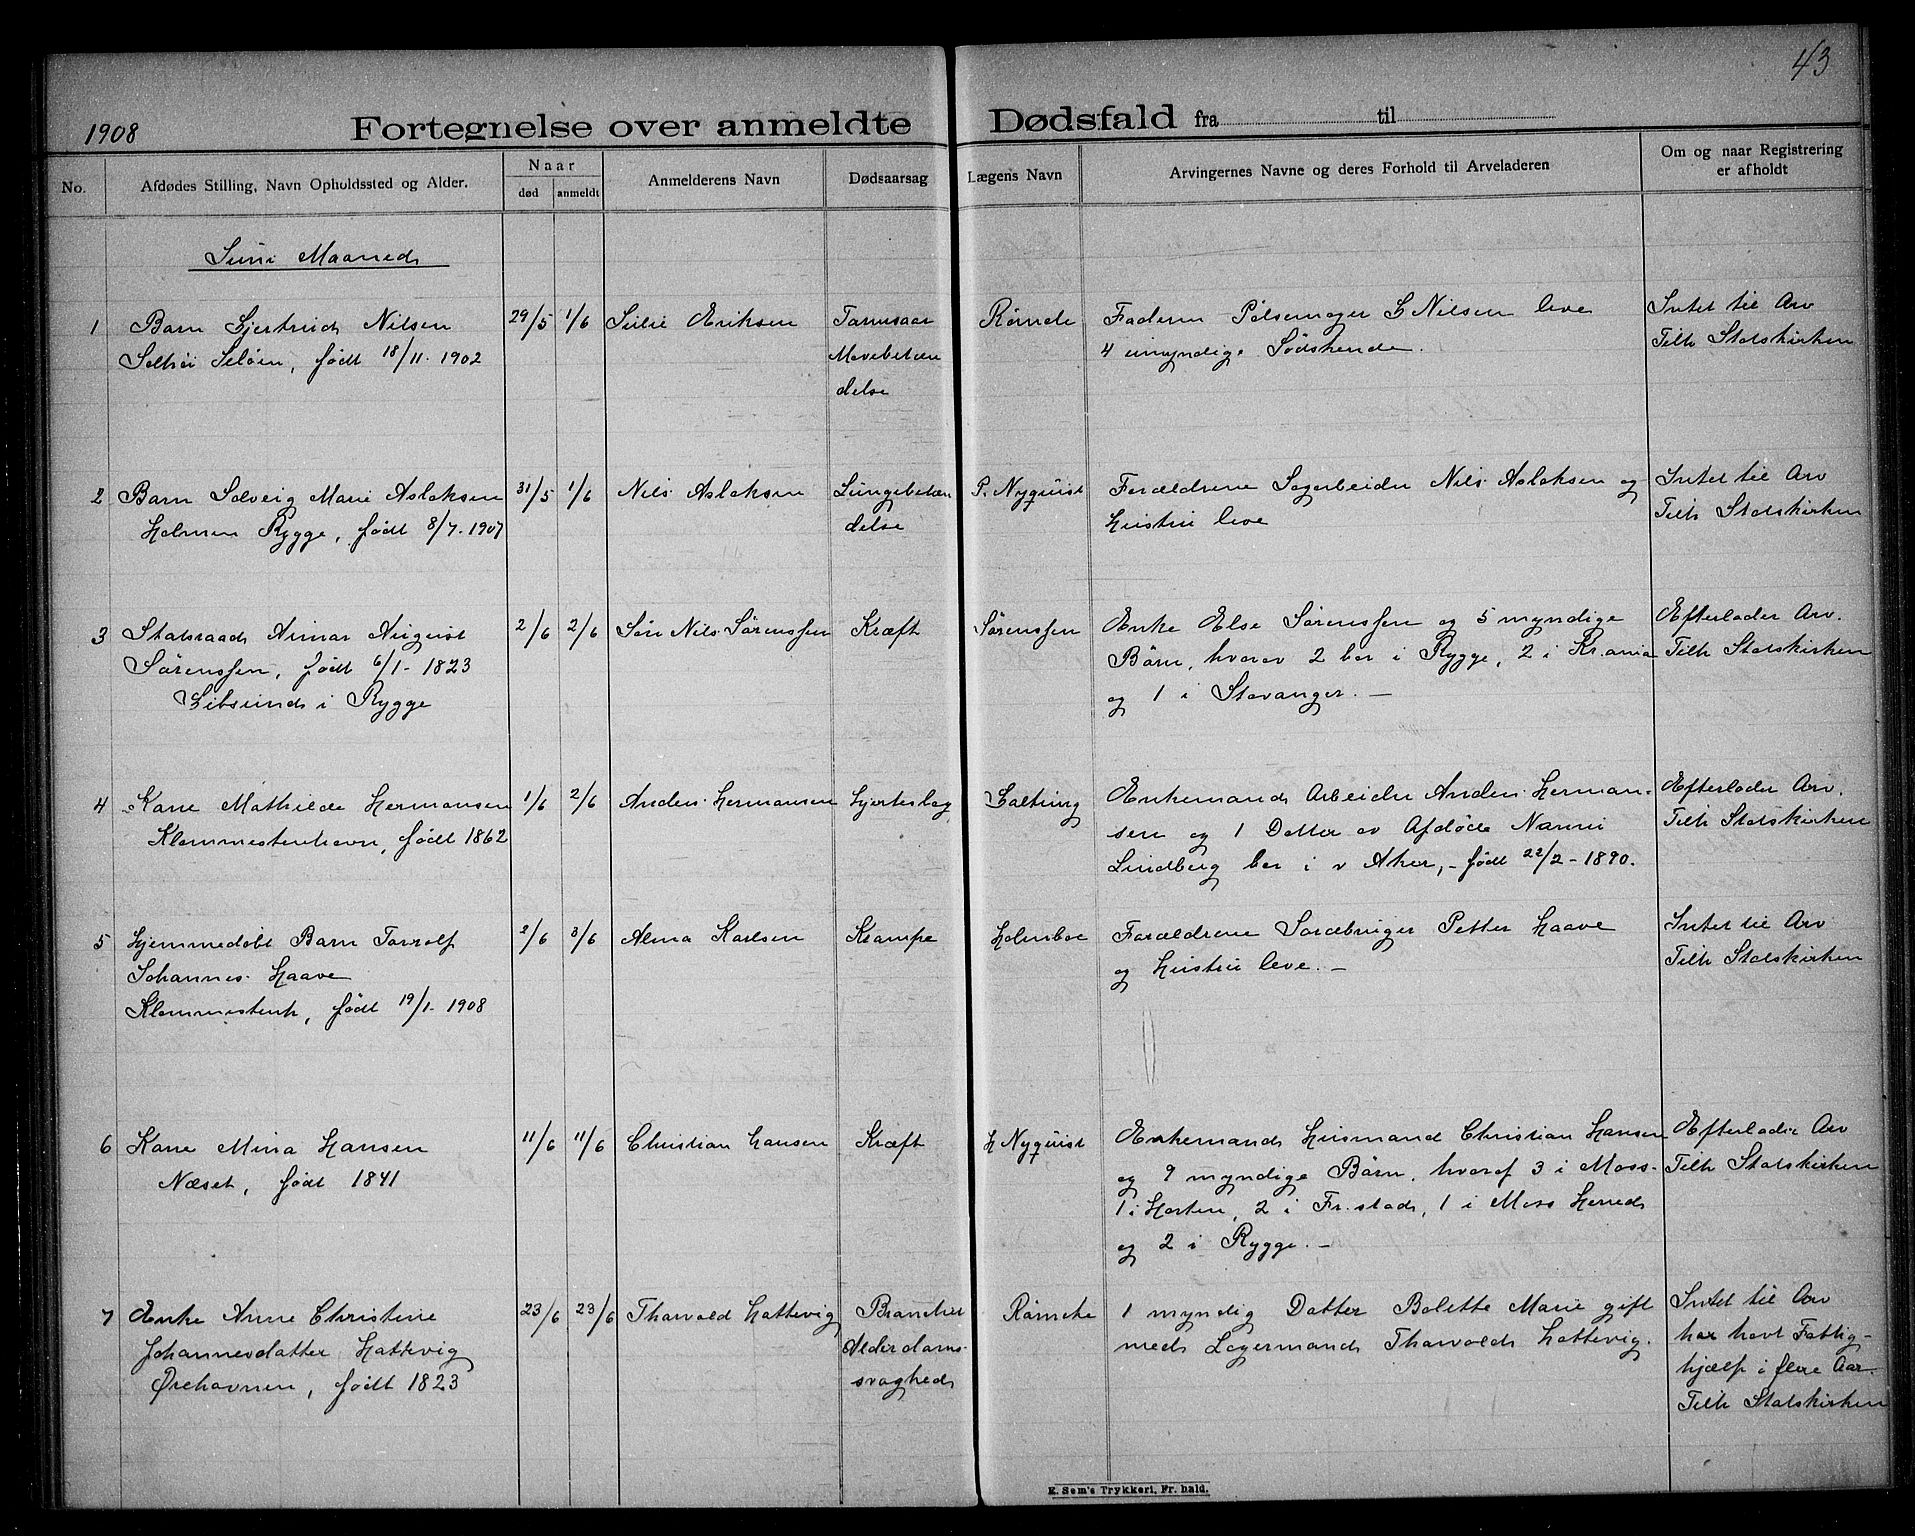 43
1908
Fortegnelse over anmeldte Dødsfald fra til
No.
Afdødes Stilling, Navn Opholdssted og Alder.
Naar
død
anmeldt
Anmelderens Navn
Dødsaarsag
Lægens Navn
Arvingernes Navne og deres Forhold til Arveladeren
Om og naar Registrering
er afholdt
Juni Maaned
1 Barn Gjertrud Nilsen 29/5 1/6 Julie Eriksen
født 18/11. 1902
delse
Faderen Pølsemager Nilsen leve
4 umyndige Sødskende.
Intet til Arv
Tilh Statskirken
2 Barn Solveig Marie Aslaksen 31/5 1/6 Nils Aslaksen Lungebetæn P. Nyquist
Holmen Rygge, født 8/7. 1907
delse
Forældrene Sagarbeider Nils Aslaksen og
Hustru leve
Intet til Arv
Tilh Statskirken
3 Statsraad Aimar August 2/6 2/6 Søn Nils Sørenssen Kræft Sørenssen
Sørenssen, født 6/1- 1823
Vibsund i Rygge
Enke Else Sørenssen og 5 myndige
Børn, hvorav 2 bor i Rygge, 2 i Kr.ania
og 1 i Stavanger. —
Efterlader Arv.
Tilh Statskirken
4 Kone Mathilde Hermansen 1/6 2/6 Anders Hermansen Hjerteslag
Klommestenhavn, født 1862
Enkemand Arbeider Anders Herman-
sen og 1 Datter av Afdøde Nanni
Lindberg bor i v Aker, – født 22/2 - 1890.
Efterlader Arv.
Tilh Statskirken
5 Hjemmedøbt Barn Torolf 2/6 3/6 Alma Karlsen Krampe Holmboe
Johannes Haave
Klommestenh, født 19/1. 1908
Forældrene Petter Haave
og Hustru leve. —
Intet til Arv
Tilh Statskirken
6 Kone Mina Hansen 11/6 11/6 Christian Hansen Kræft H Nyquist
Næset, født 1841
Enkemand Husmand Christian Hansen
og 9 myndige Børn, hvoraf 3 i Moss
1 i Horten, 2 i Fr.stad, 1 i Moss Herred
og 2 i Rygge. —
Efterlader Arv
Tilh Statskirken
7 Enke Anne Christine 23/6 23/6 Thorvald Hattevig Rømcke
Johannesdatter Hattevig
Ørehavnen, født 1823
Alderdoms-
svaghed
1 myndig Datter Bolette Marie gift
med Lagermand Thorvald Hattevig.
Intet til Arv
har havt Fattig-
hjælp i flere Aar
Tilh Statskirken
E. Sem's Trykkeri, Fr.hald.